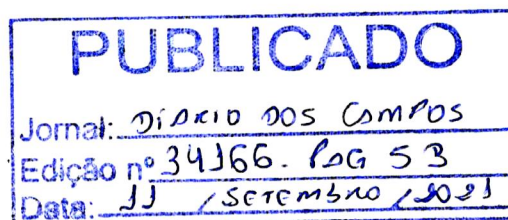 PUBLICADO
Jornal: DIÁRIO DOS CAMPOS
Edição nº 34166. PAG 5B
Data: 11 / SETEMBRO / 2021